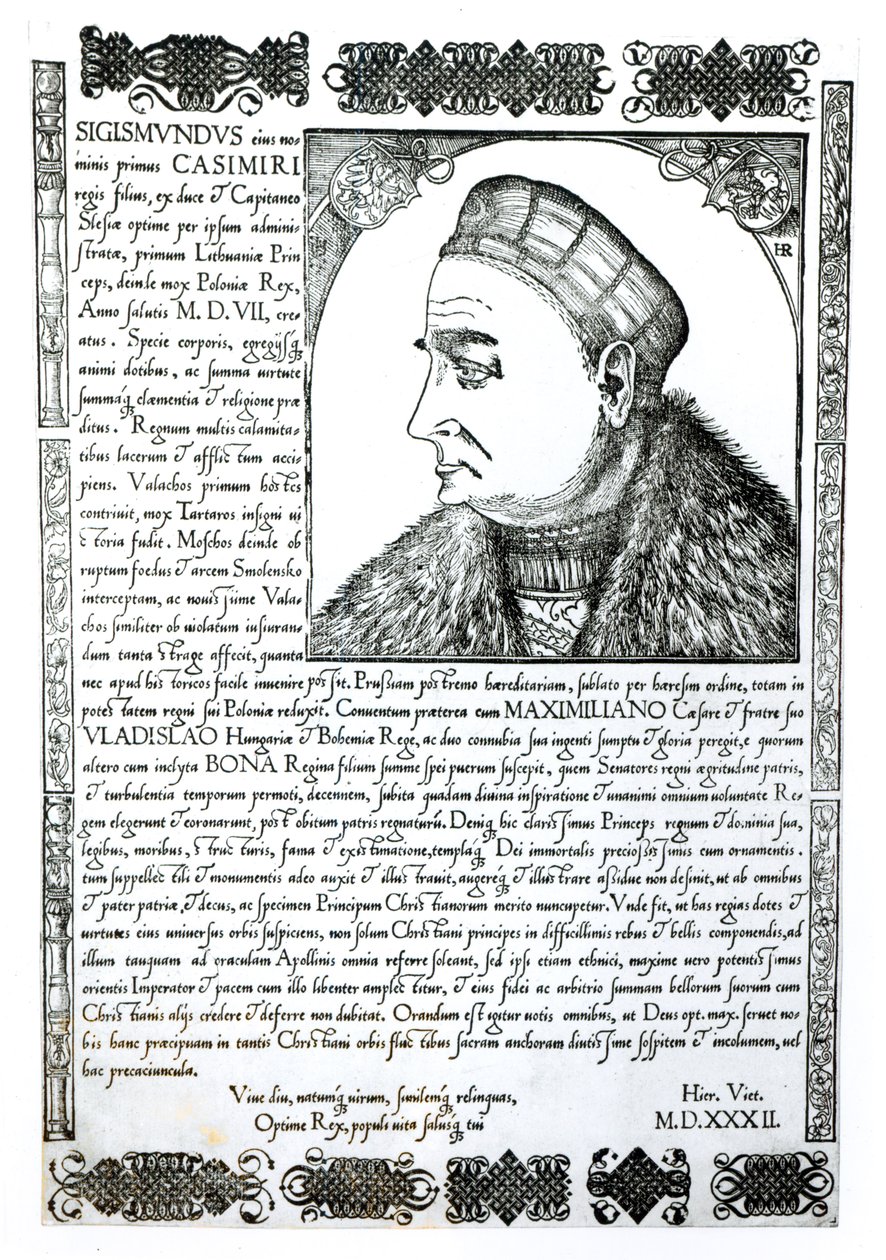 SIGISMVNDVS eius no-
minis primus CASIMIRI
regis filius, ex duce & Capitaneo
Slesiæ optime per ipsum admini-
stratæ, primum Lithuaniæ Prin
ceps, deinde mox Poloniæ Rex,
Anno salutis M. D. VII, cre-
atus. Specie corporis, egregijsq
animi dotibus, ac summa virtute
summaq clæmentia & religione præ
ditus. Regnum multis calamita-
tibus lacerum & afflictum acci-
piens. Valachos primum hostes
contriuit, mox Tartaros insigni ui
ctoria fudit. Moschos deinde ob
ruptum foedus & arcem Smolensko
interceptam, ac nouissime Vala-
chos similiter ob uiolatum iusiuran-
dum tanta strage affecit, quanta
HR
nec apud historicos facile inuenire possit. Prussiam postremo hæreditariam, sublato per hæresim ordine, totam in
potestatem regni sui Poloniæ reduxit. Conuentum præterea cum MAXIMILIANO Cæsare & fratre suo
VLADISLAO Hungariæ & Bohemiæ Rege, ac duo connubia sua ingenti sumptu & gloria peregit, e quorum
altero cum inclyta BONA Regina filium summe spei puerum suscepit, quem Senatores regni ægritudine patris,
& turbulentia temporum permoti, decennem, subita quadam diuina inspiratione & unanimi omnium voluntate Re-
gem elegerunt & coronarunt, post obitum patris regnaturū. Deniq hic clarissimus Princeps regnum & dominia sua,
legibus, moribus, structuris, fama & existimatione, templaq Dei immortalis preciosissimis cum ornamentis.
tum suppellectili & monumentis adeo auxit & illustrauit, augereq & illustrare assidue non desinit, ut ab omnibus
& pater patriæ, & decus, ac specimen Principum Christianorum merito nuncupetur. Vnde fit, ut has regias dotes &
virtutes eius uniuersus orbis suspiciens, non solum Christiani principes in difficillimis rebus & bellis componendis, ad
illum tauquam ad oraculam Apollinis omnia referre soleant, sed ipsi etiam ethnici, maxime uero potentissimus
orientis Imperator & pacem cum illo libenter amplectitur, & eius fidei ac arbitrio summam bellorum suorum cum
Christianis alijs credere & deferre non dubitat. Orandum est igitur uotis omnibus, ut Deus opt. max. seruet no-
bis hanc præcipuam in tantis Christiani orbis fluctibus sacram anchoram diutissime sospitem & incolumem, uel
hac precaciuncula.
Viue diu, natumq uirum, similemq relinquas,
Optime Rex, populi uita salusq tui
Hier. Viet.
M.D.XXXII.